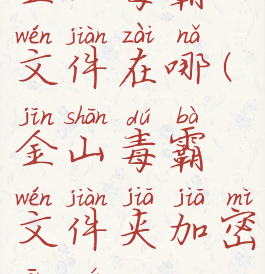 wén jiàn zài nǎ
文件在哪(
jīn shān dú bà
金山毒霸
wén jiàn jiā jiā mì
文件夹加密